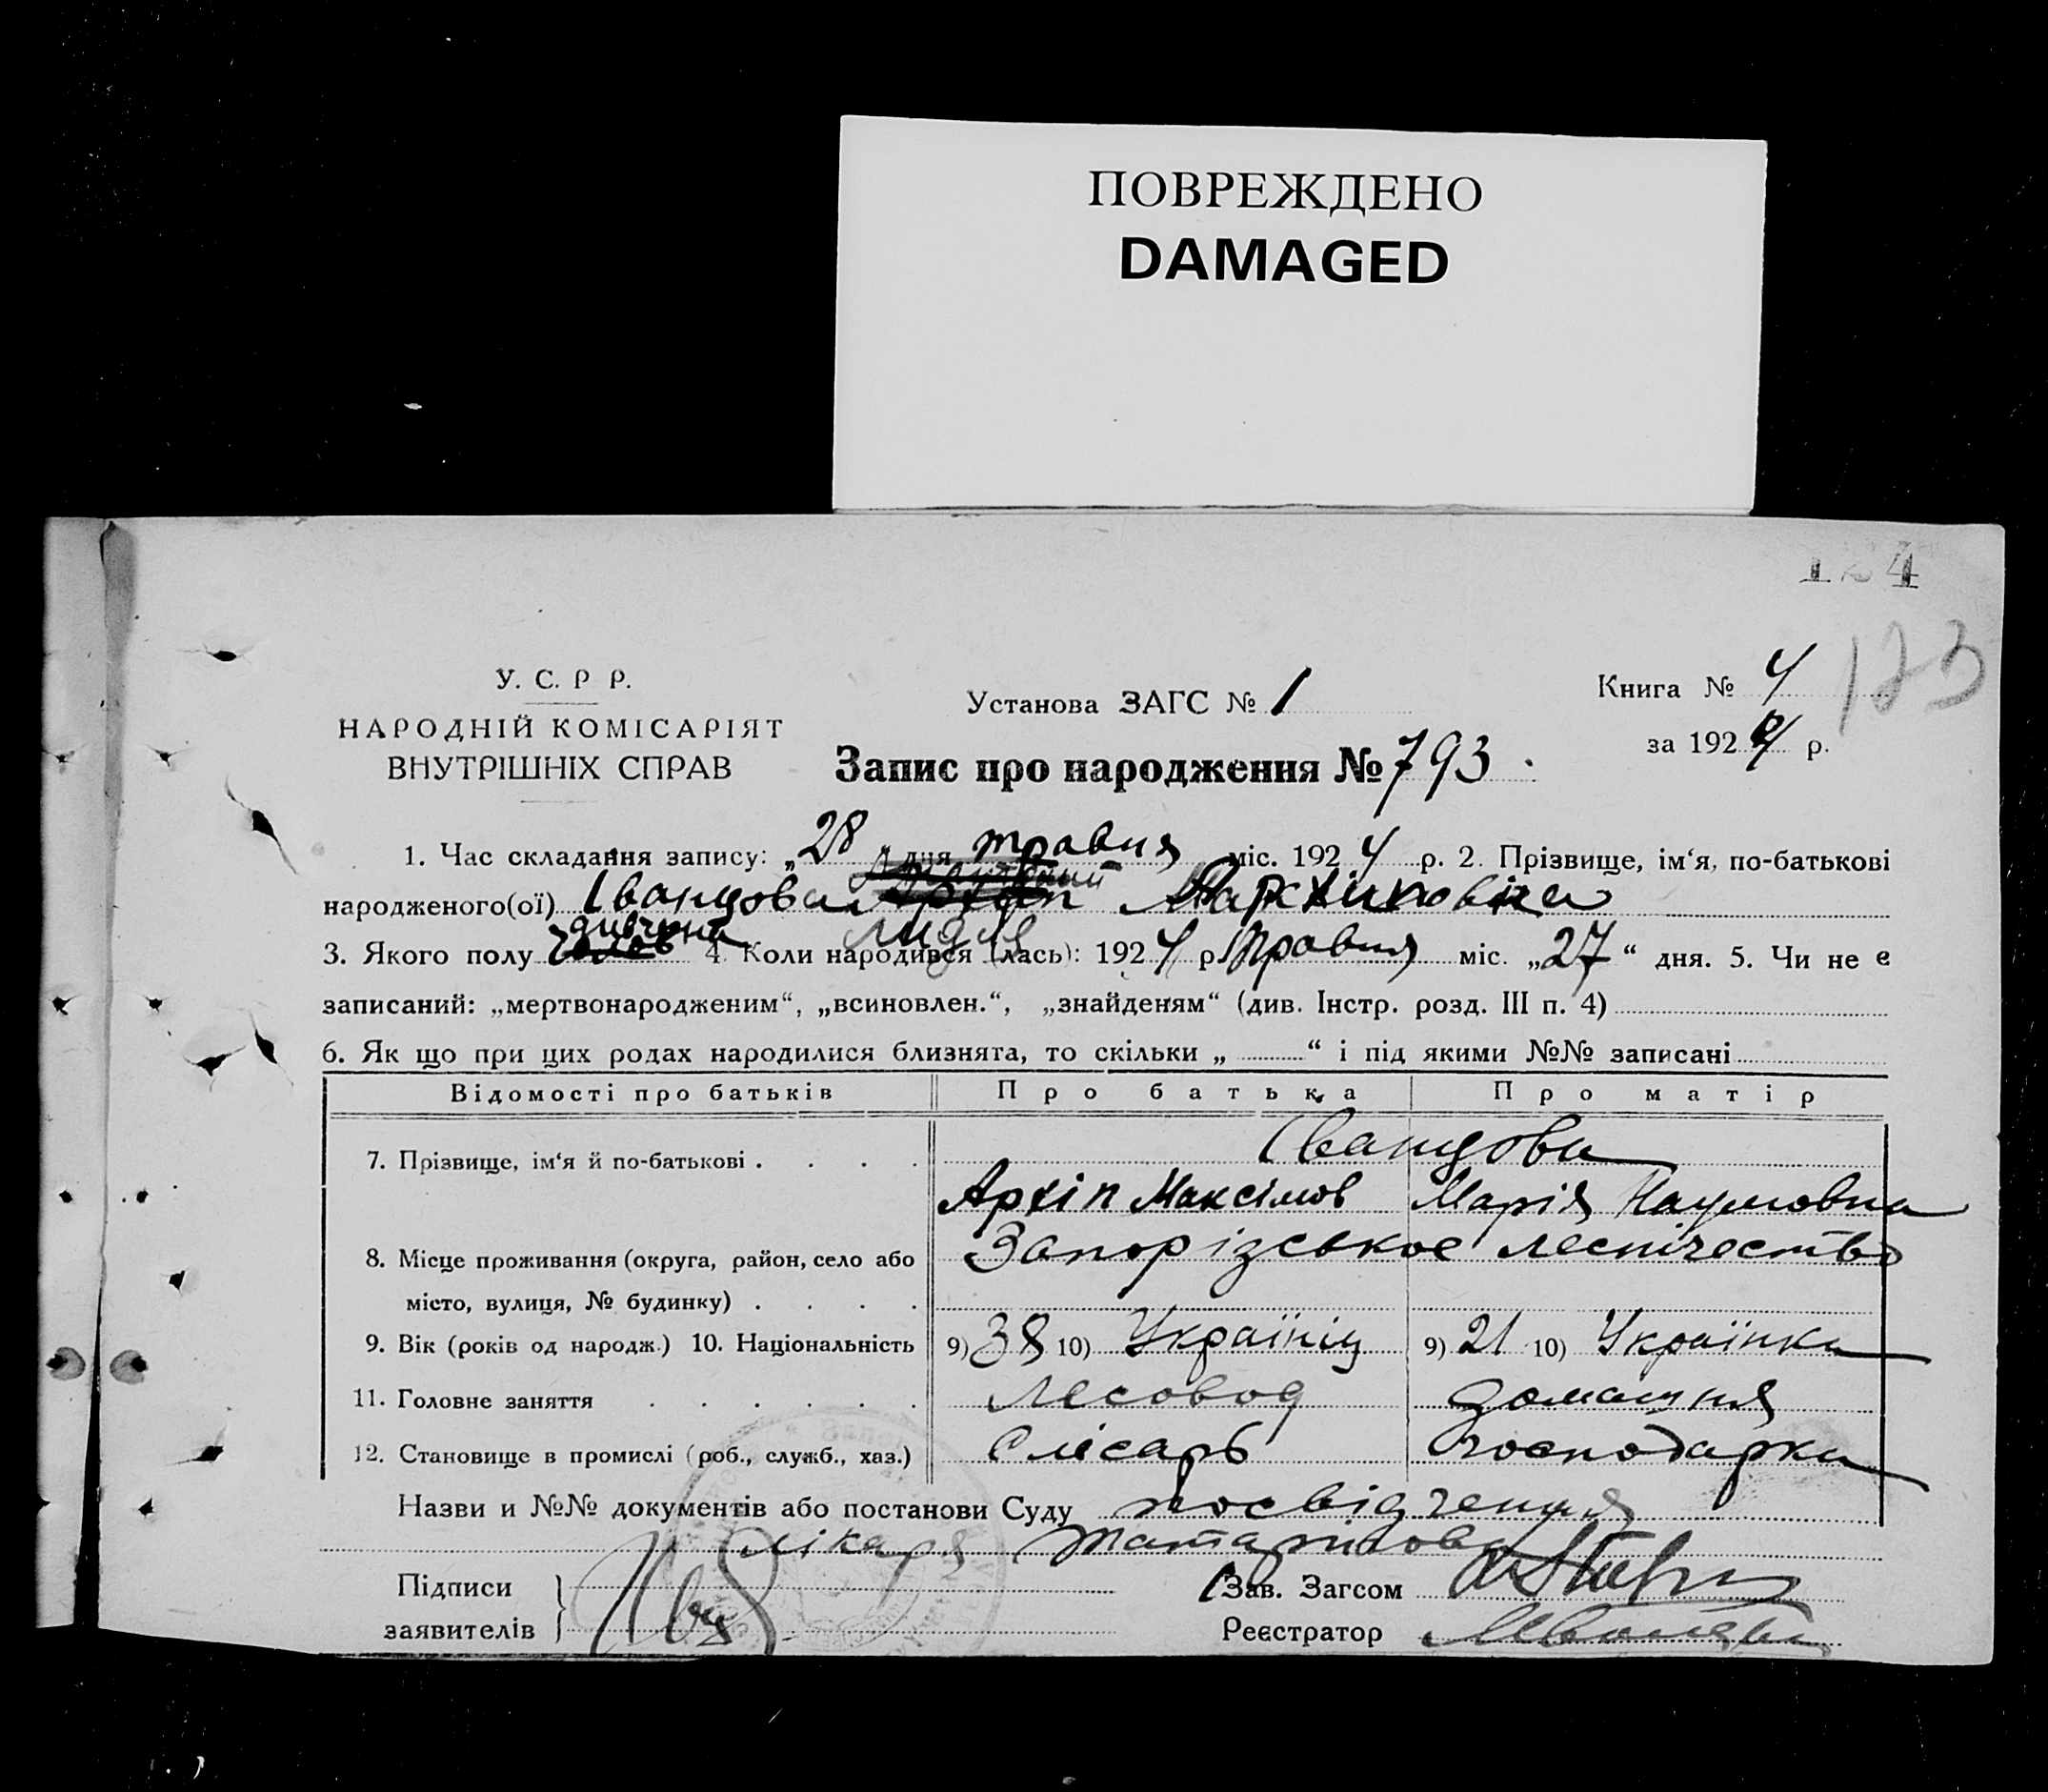 ПОВРЕЖДЕНО
DAMAGED
124
123
У. С. Р Р.
НАРОДНІЙ КОМІСАРІЯТ
ВНУТРІШНІХ СПРАВ
Установа ЗАГС № 1
Книга № 4
за 1924 р.
Запис про народження № 793
1. Час складання запису: „28 „ дня травня міс. 1924 р. 2. Прізвище, ім‘я, по-батькові
народженого(ої) Іванцова Архіповна
дивчина Лидия
3. Якого полу 4. Коли народився (лась): 1924 р. травня міс. „27“ дня. 5. Чи не є
записаний: „мертвонародженим“, „всиновлен.“, „знайденям“ (див. Інстр. розд. III п. 4)
6. Як що при цих родах народилися близнята, то скільки „ “ і під якими №№ записані
Відомості про батьків Про батька Про матір
Іванцови
7. Прізвище, ім‘я й по-батькові . . . .
Архіп Максімов Марія Наумовна
8. Місце проживання (округа, район, село або Запорізькое лесничество
місто, вулиця, № будинку) . . . .
9. Вік (років од народж.) 10. Національність 9) 38 10) Українець 9) 21 10) Українка
11. Головне заняття . . . . . . Лесовод домашня
12. Становище в промислі (роб., служб., хаз.) Слісарь господарка
Назви и №№ документів або постанови Суду посвідчення
лікаря
Підписи
заявителів
Зав. Загсом
Реєстратор